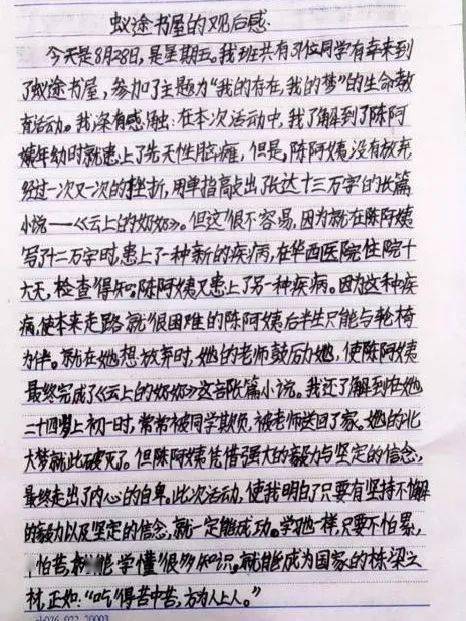 蚁途书屋的观后感
今天是8月28日，是星期五。我班共有37位同学有幸来到
了蚁途书屋，参加了主题为“我的存在，我的梦”的生命教
育活动。我深有感触：在本次活动中，我了解到了陈阿
姨年幼时就患上了先天性脑瘫，但是，陈阿姨没有放弃
经过一次又一次的挫折，用单指敲出了长达十三万字的长篇
小说——《云上的奶奶》。但这很不容易，因为就在陈阿姨
写了十二万字时，患上了一种新的疾病，在华西医院住院十
六天，检查得知，陈阿姨又患上了另一种疾病。因为这种疾
病，使本来走路就很困难的陈阿姨后半生只能与轮椅
为伴。就在她想放弃时，她的老师鼓励她，使陈阿姨
最终完成了《云上的奶奶》这部长篇小说。我还了解到在她
二十四岁上初一时，常常被同学欺负，被老师送回了家。她的北
大梦就此破灭了。但陈阿姨凭借强大的毅力与坚定的信念，
最终走出了内心的自卑。此次活动，使我明白了只要有坚持不懈
的毅力以及坚定的信念，就一定能成功。学习也一样，只要不怕累，
怕苦，就能学懂很多知识。就能成为国家的栋梁之
材，正如：“吃得苦中苦，方为人上人。”